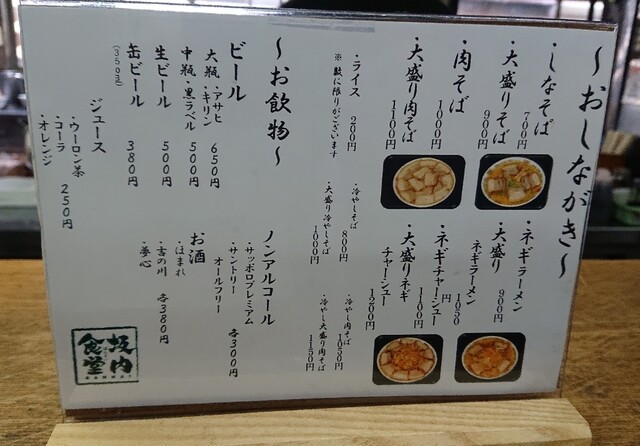 ～おしながき～
・しなそば
700円
・大盛りそば
900円
・肉そば
1000円
・大盛り肉そば
1100円
・ネギラーメン
900円
・大盛り
ネギラーメン
1050
円
・ネギチャーシュー
1100円
・大盛りネギ
チャーシュー
1200円
・ライス
200円
※数に限りがございます
・冷やしそば
800円
・大盛り冷やしそば
1000円
・冷やし肉そば
1050円
・冷やし大盛り肉そば
1150円
～お飲物～
ビール
大瓶・アサヒ
・キリン
650円
中瓶・黒ラベル
500円
生ビール
500円
缶ビール
(350ml)
380円
ジュース
・ウーロン茶
・コーラ
・オレンジ
250円
ノンアルコール
・サッポロプレミアム
・サントリー
オールフリー
各300円
お酒
・ほまれ
・吉の川
・夢心
各380円
坂内
食堂